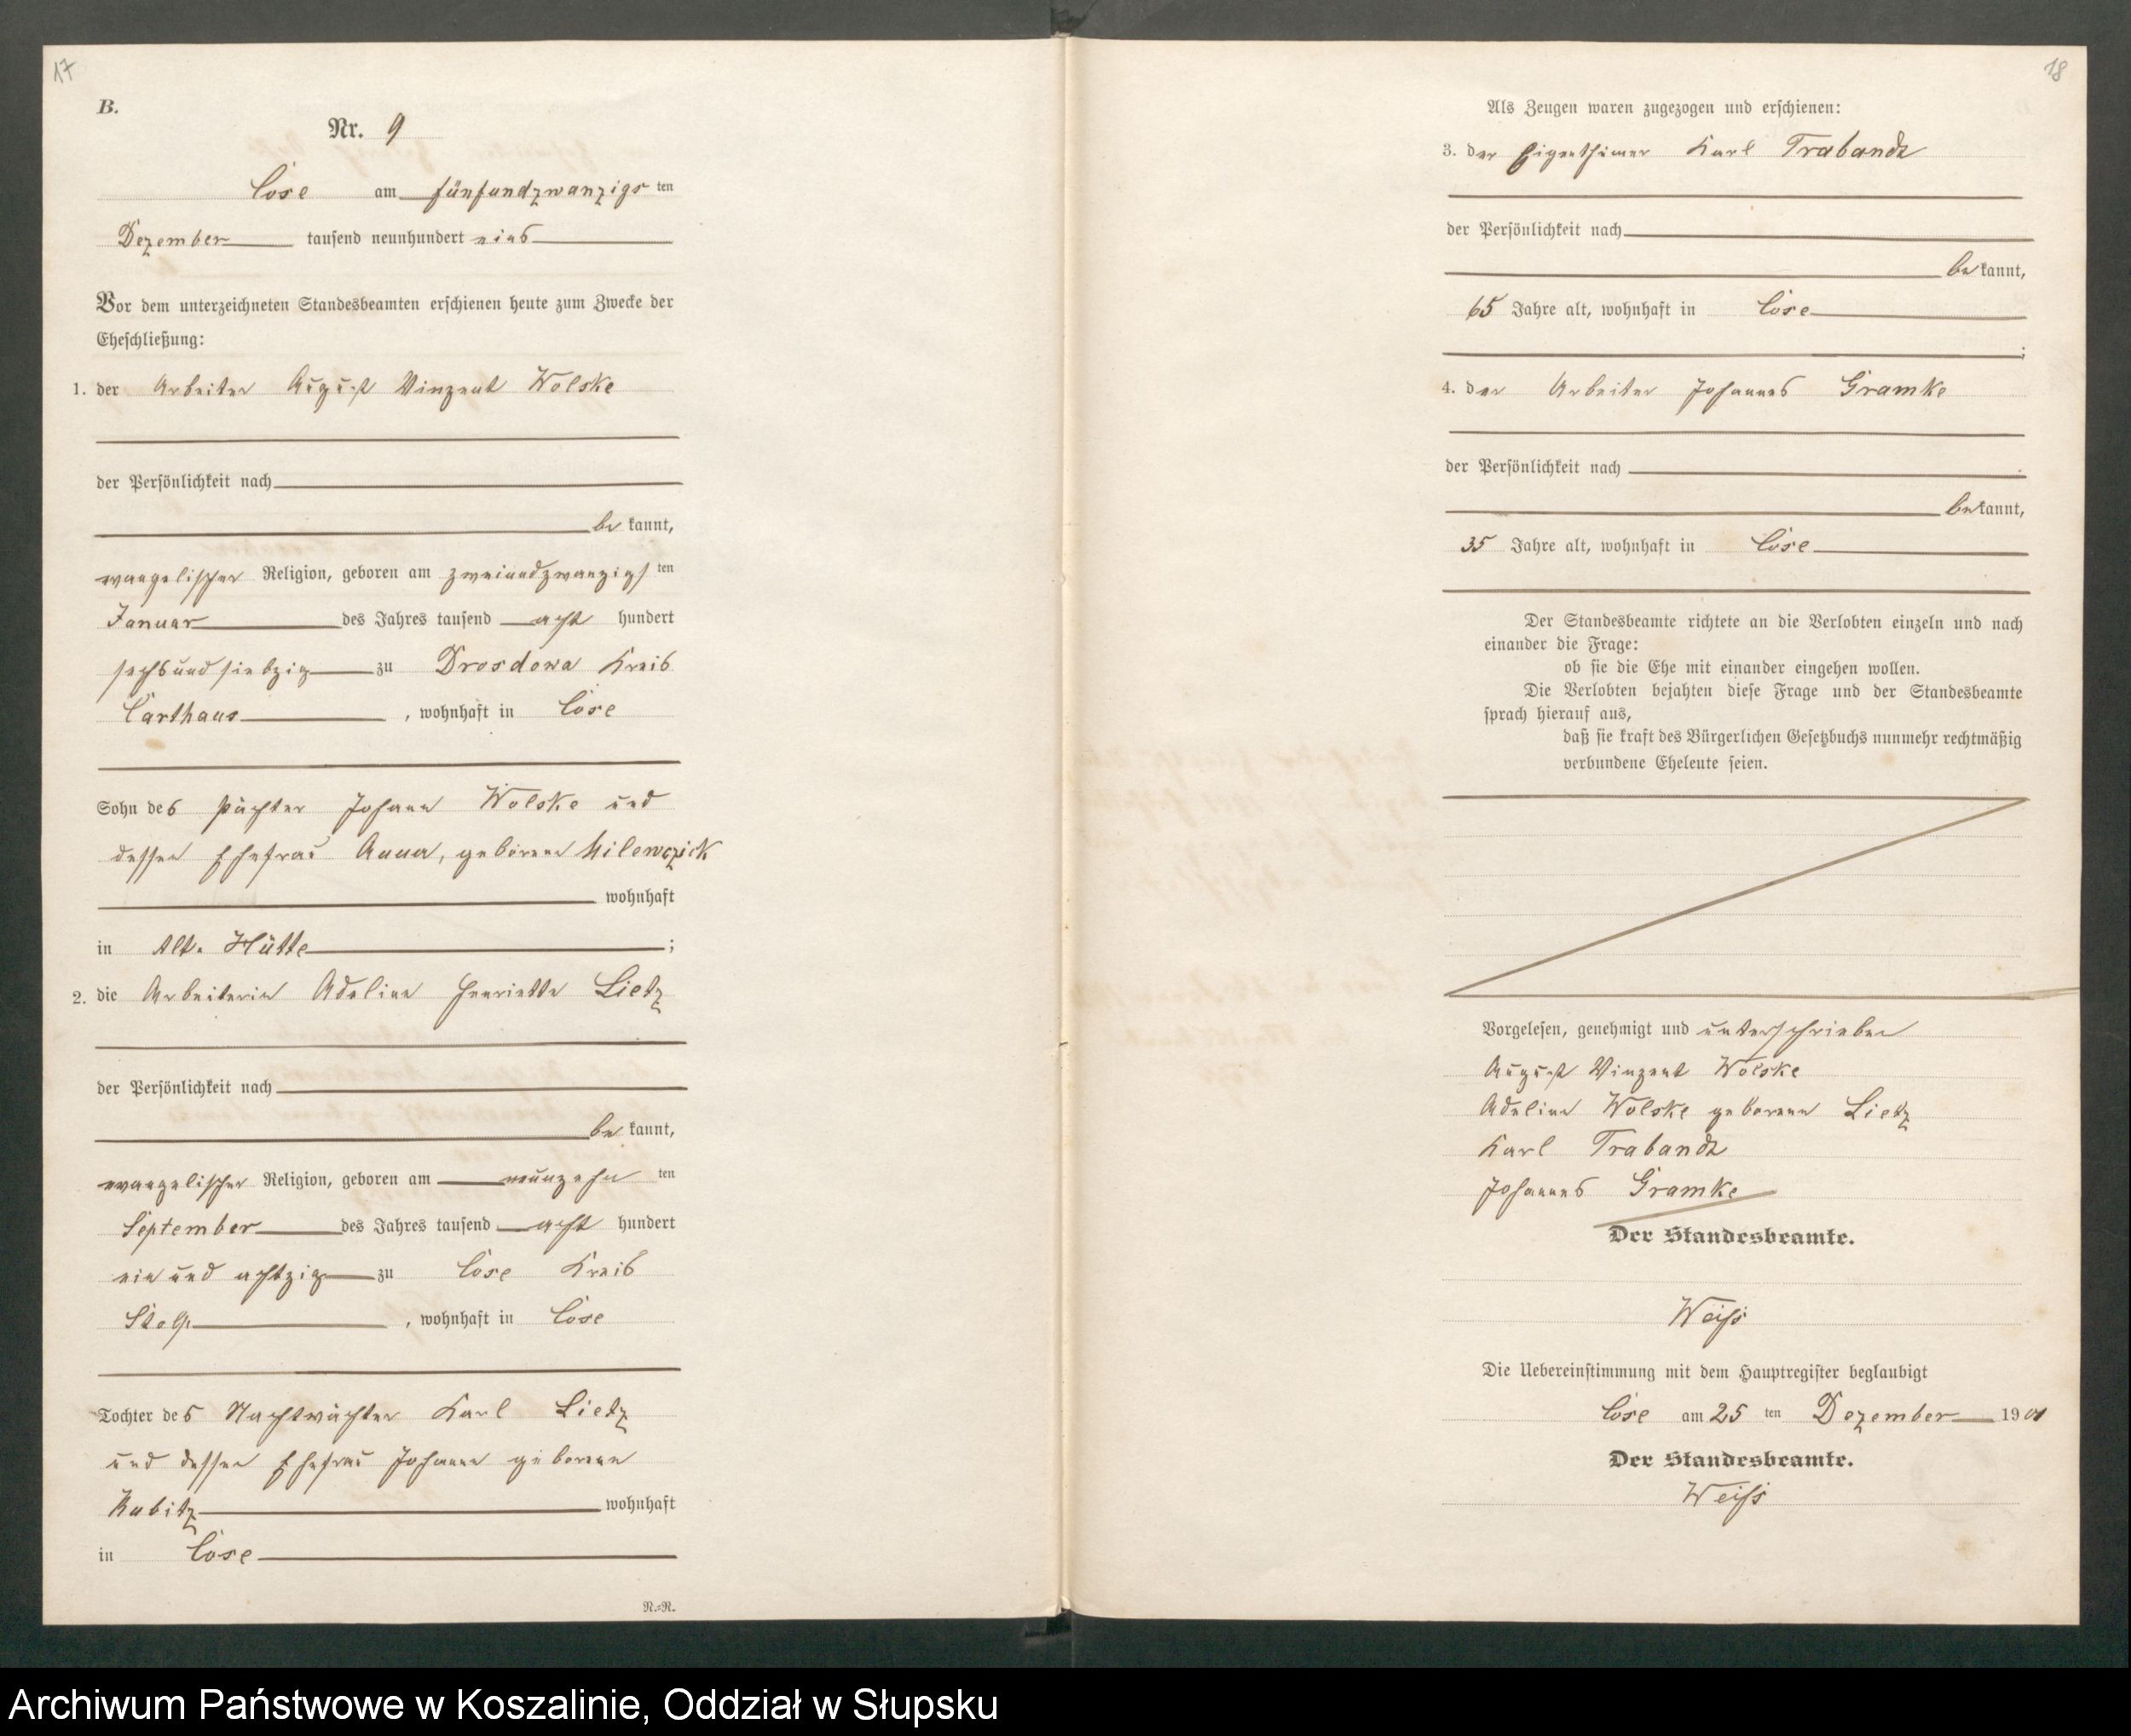 17
B.
Nr. 9
Lose am fünfundzwanzigs ten
Dezember tausend neunhundert eins
Vor dem unterzeichneten Standesbeamten erschienen heute zum Zwecke der
Eheschließung:
1. der Arbeiter August Vinzent Wolske
der Persönlichkeit nach
be kannt,
evangelischer Religion, geboren am zweiundzwanzigs ten
Januar des Jahres tausend acht hundert
sechsundsiebzig zu Drosdowa Kreis
Carthaus , wohnhaft in Lose
Sohn des Pächter Johann Wolske und
dessen Ehefrau Anna, geborene Milewczick
wohnhaft
in Alt. Hütte ;
2. die Arbeiterin Adeline Henriette Lietz
der Persönlichkeit nach
be kannt,
evangelischer Religion, geboren am neunzehn ten
September des Jahres tausend acht hundert
ein und achtzig zu Lose Kreis
Stolp , wohnhaft in Lose
Tochter des Nachtwächter Karl Lietz
und dessen Ehefrau Johanne geborene
Kubitz wohnhaft
in Lose
N.-R.
18
Als Zeugen waren zugezogen und erschienen:
3. der Eigenthümer Karl Trabandt
der Persönlichkeit nach
be kannt,
65 Jahre alt, wohnhaft in Lose
;
4. der Arbeiter Johannes Gramke
der Persönlichkeit nach
be kannt,
35 Jahre alt, wohnhaft in Lose
Der Standesbeamte richtete an die Verlobten einzeln und nach
einander die Frage:
ob sie die Ehe mit einander eingehen wollen.
Die Verlobten bejahten diese Frage und der Standesbeamte
sprach hierauf aus,
daß sie kraft des Bürgerlichen Gesetzbuchs nunmehr rechtmäßig
verbundene Eheleute seien.
Vorgelesen, genehmigt und unterschrieben
August Vinzent Wolske
Adeline Wolske geborene Lietz
Karl Trabandt
Johannes Gramke
Der Standesbeamte.
Weiß
Die Uebereinstimmung mit dem Hauptregister beglaubigt
Lose am 25 ten Dezember 19 01
Der Standesbeamte.
Weiß
Archiwum Państwowe w Koszalinie, Oddział w Słupsku